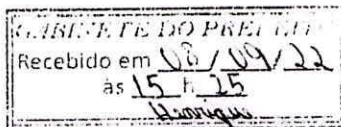 GABINETE DO PREFEITO
Recebido em 08/09/22
às 15 h 25
Henrique